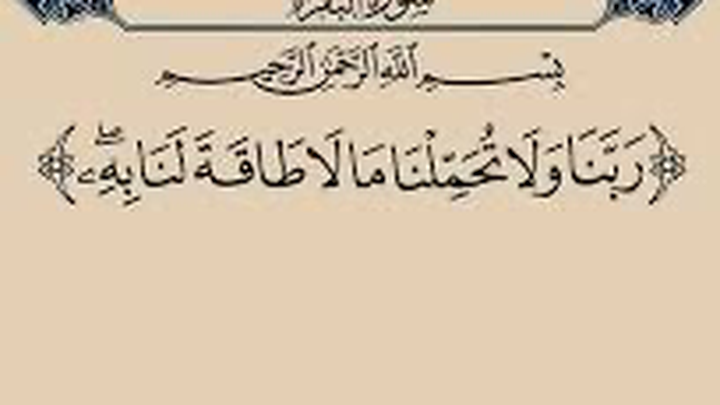 سورة البقرة
بِسْمِ ٱللَّهِ ٱلرَّحْمَٰنِ ٱلرَّحِيمِ
﴿رَبَّنَا وَلَا تُحَمِّلْنَا مَا لَا طَاقَةَ لَنَا بِهِۦۖ﴾